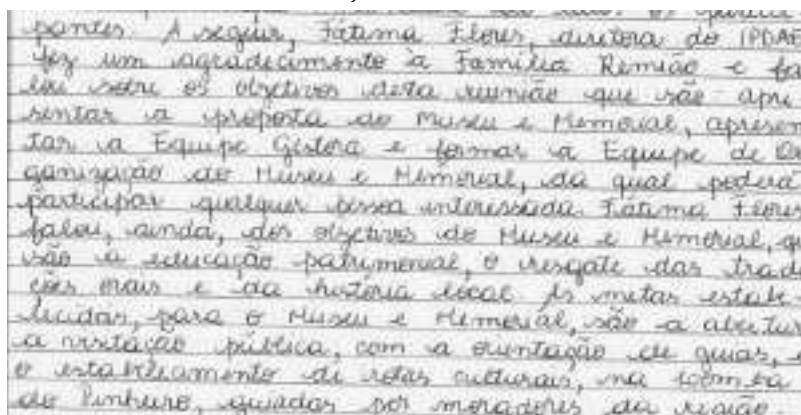 pantes. A seguir, Fátima Flores, diretora do IPDAE
fez um agradecimento à Família Remião e fa
lou sobre os objetivos desta reunião que são apre
sentar a proposta do Museu e Memorial, apresen
tar a Equipe Gestora e formar a Equipe de Or
ganização do Museu e Memorial, da qual poderá
participar qualquer pessoa interessada. Fátima Flores
falou, ainda, dos objetivos do Museu e Memorial, qu
são a educação patrimonial, o resgate das trad
ções orais e da história local. As metas estabe-
lecidas, para o Museu e Memorial, são a abertur
a visitação pública, com a orientação de guias, e
o estabelecimento de rotas culturais, na Lomba
do Pinheiro, guiadas por moradores da região.